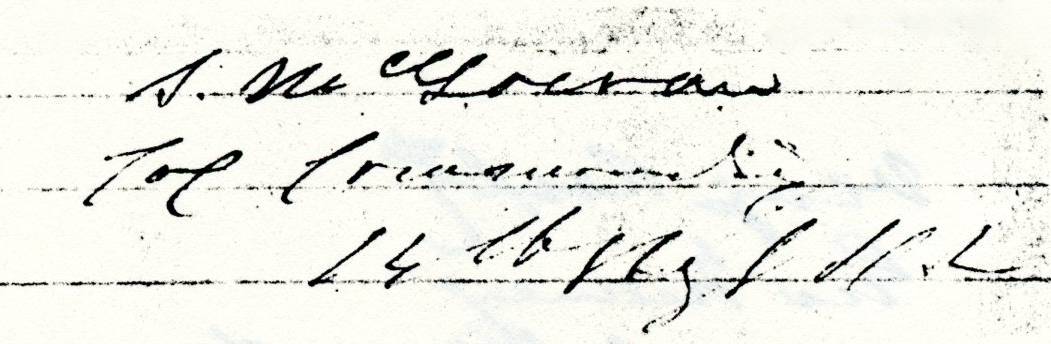 S. McGowan
Col Commanding
14th Reg